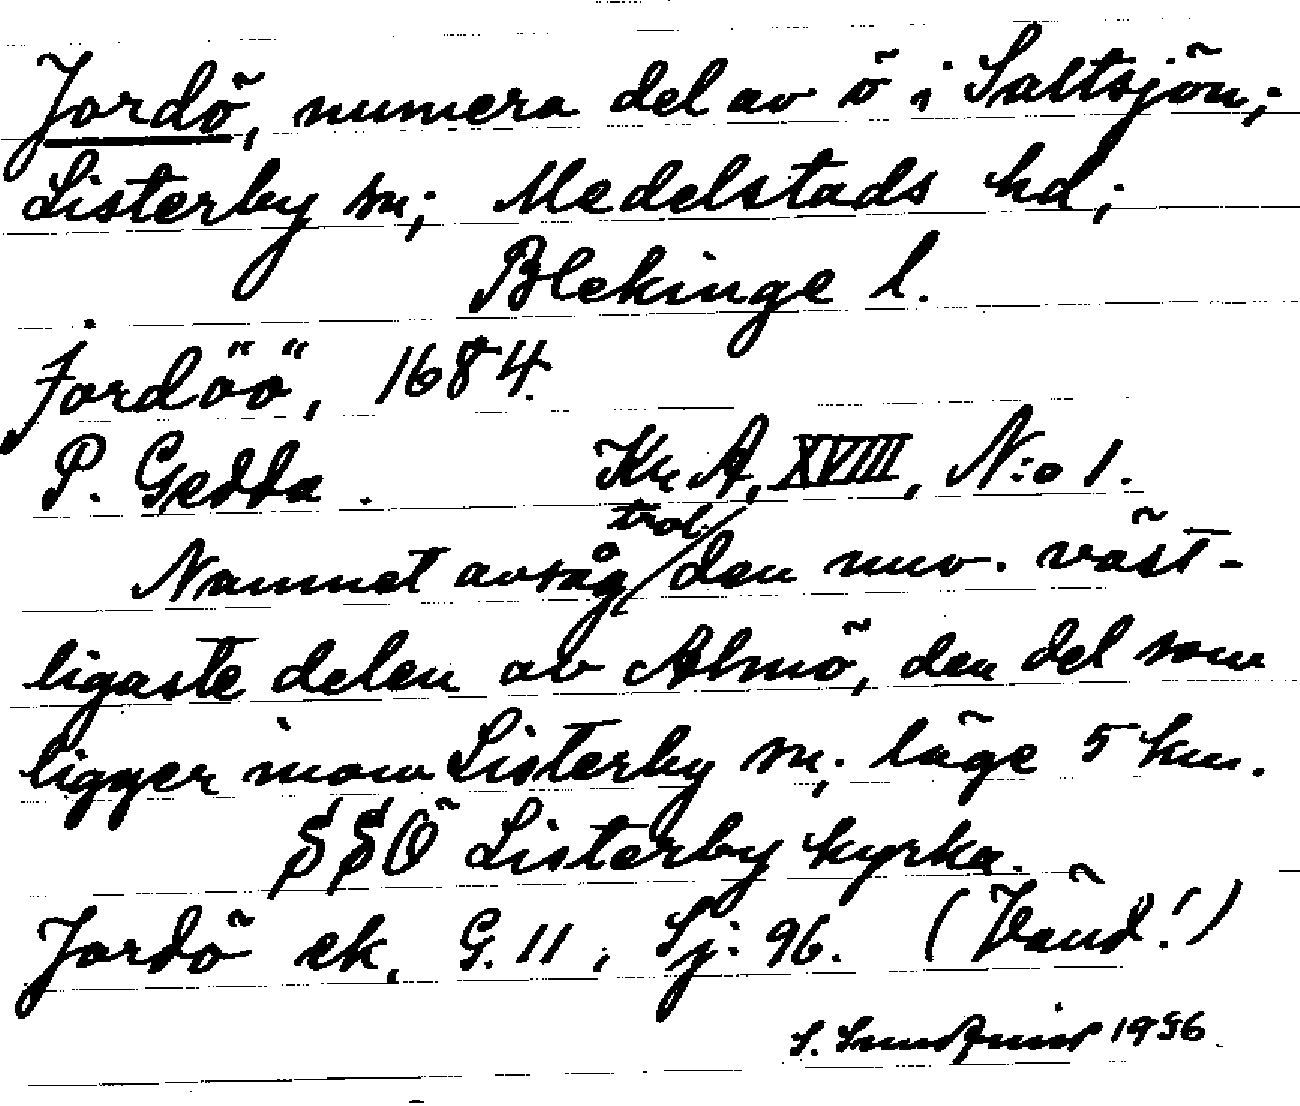 Jordö, numera del av ö i Saltsjön;
Listerby sn; Medelstads hd;
Blekinge l.
Jordöö, 1684.
P. Gedda. Kr A, XVIII, N:o 1.
Namnet avsåg trol. den nuv. väst-
ligaste delen av Almö, den del som
ligger inom Listerby sn; läge 5 km.
SSÖ Listerby kyrka.
Jordö ek. G. 11, Sj: 96. (Vänd!)
S. Sundqvist 1956